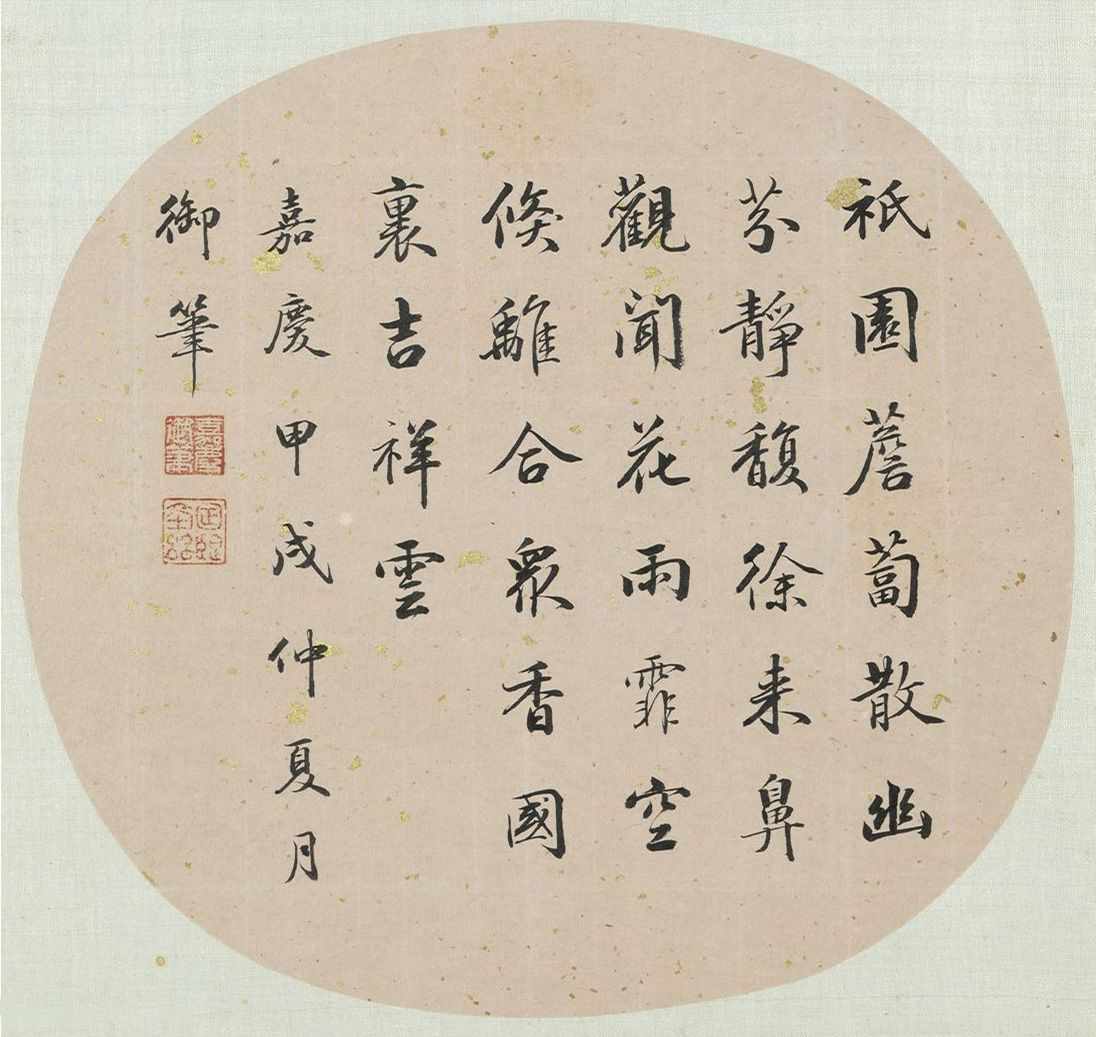 祇園薝蔔散幽
芬靜馥徐来鼻
觀聞花雨霏空
倐離合衆香國
裏吉祥雲
嘉慶甲戌仲夏月
御筆
嘉慶御筆